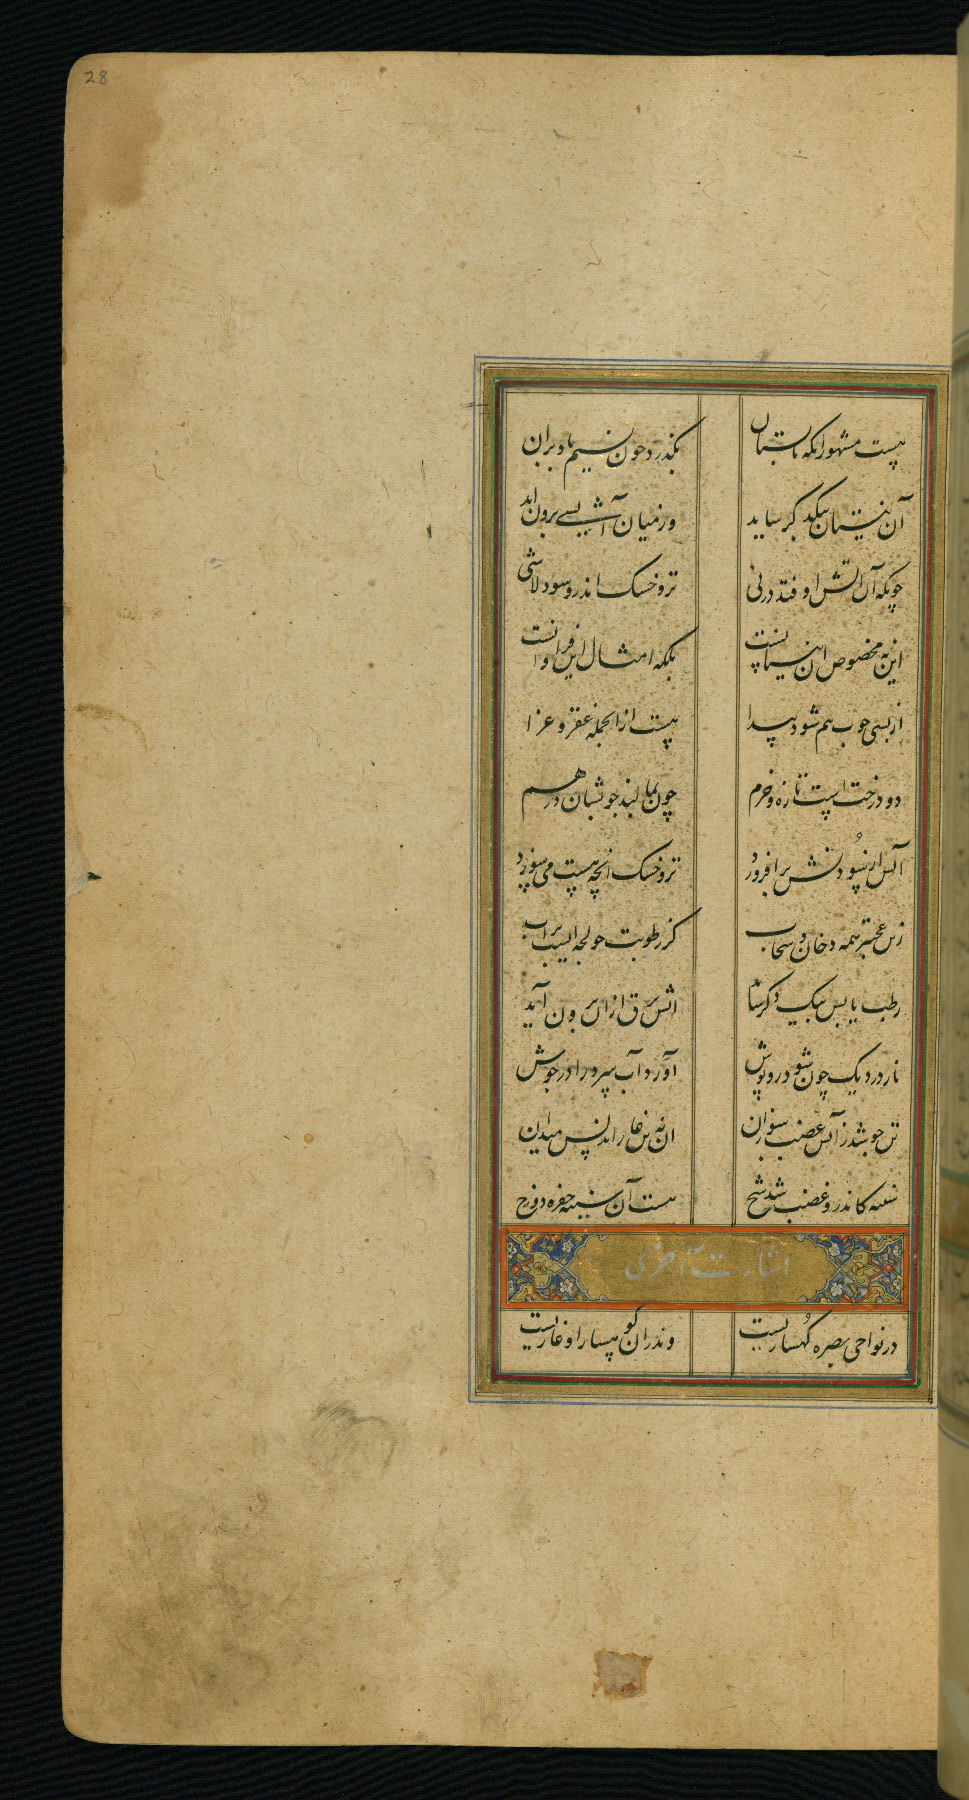 28
هست مشهور آنکه تابستان بگذرد چون نسیم باد بران
آن نیستان بیکدگر ساید وز میان آتشی برون آید
چونکه آن آتش اوفتد در نی تر و خشک اندرو شود لاشی
این نه مخصوص آن نیستانست بلکه امثال این فراوانست
از بسی چوب هم شود پیدا هست از آنجمله عفر و عزا
دو درخت است تازه و خرم چون بمالند چوبشان در هم
آتش از سودنش برافروزد تر و خشک آنچه هست می سوزد
زین عجبتر همه دخان و سحاب کز رطوبت
رطب یابس بیکدگر ساید آتش برق از آن برون آید
نار در دیک چون شود روپوش آورد آب سرد را در جوش
تن جوشد ز آتش غضب
سینه کاندرو غضب شد شخ هست آن سینه حفره دوزخ
اشارت آخری
در نواحی بصره کهساریست وندران کوهسار او غاریست